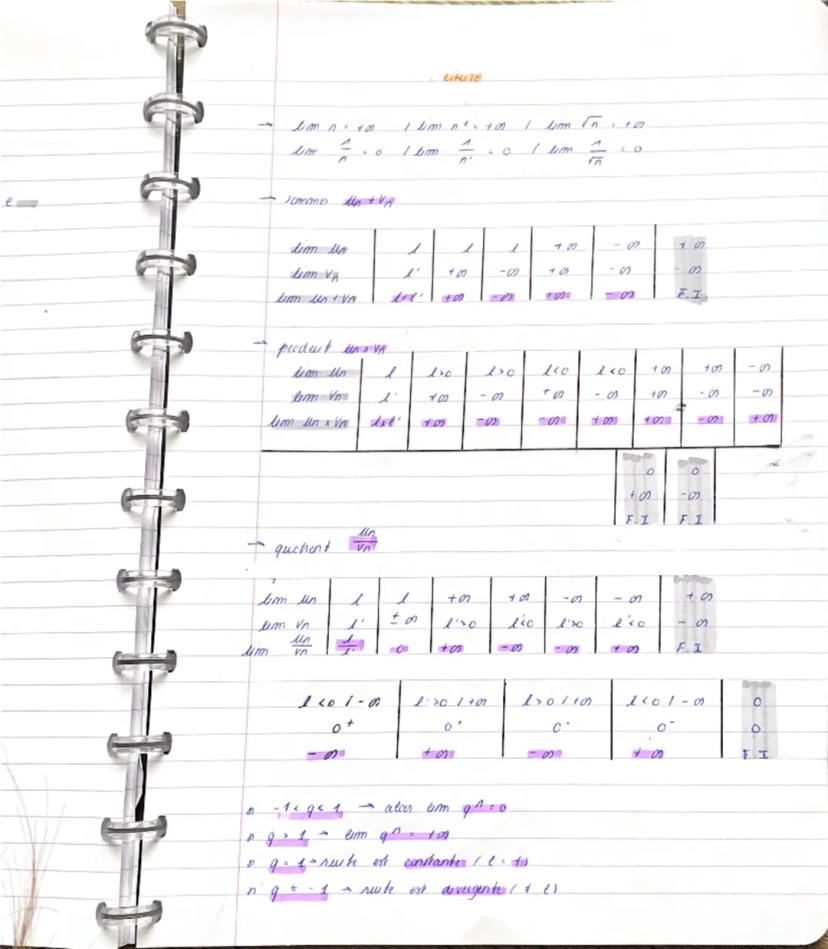 LIMITE
→ lim n = +∞ / lim n² = +∞ / lim √n = +∞
lim 1/n = 0 / lim 1/n² = 0 / lim 1/√n = 0
→ sommes un + vn
lim un | l | l | l | +∞ | -∞ | +∞
lim vn | l' | +∞ | -∞ | +∞ | -∞ | -∞
lim un+vn | l+l' | +∞ | -∞ | +∞ | -∞ | F.I
→ produit un × vn
lim un | l | l>0 | l>0 | l<0 | l<0 | +∞ | +∞ | -∞
lim vn | l' | +∞ | -∞ | +∞ | -∞ | +∞ | -∞ | -∞
lim un × vn | l×l' | +∞ | -∞ | -∞ | +∞ | +∞ | -∞ | +∞
0 | 0
+∞ | -∞
F.I | F.I
→ quotient un/vn
lim un | l | l | +∞ | +∞ | -∞ | -∞ | +∞
lim vn | l' | ±∞ | l'>0 | l'<0 | l'>0 | l'<0 | -∞
lim un/vn | l/l' | 0 | +∞ | -∞ | -∞ | +∞ | F.I
l<0 / -∞ | l>0 / +∞ | l>0 / +∞ | l<0 / -∞ | 0
0⁺ | 0⁺ | 0⁻ | 0⁻ | 0
-∞ | +∞ | -∞ | +∞ | F.I
-1 < q < 1 → alors lim qⁿ = 0
q > 1 → lim qⁿ = +∞
q = 1 → suite est constante (l = 1)
→ suite est divergente